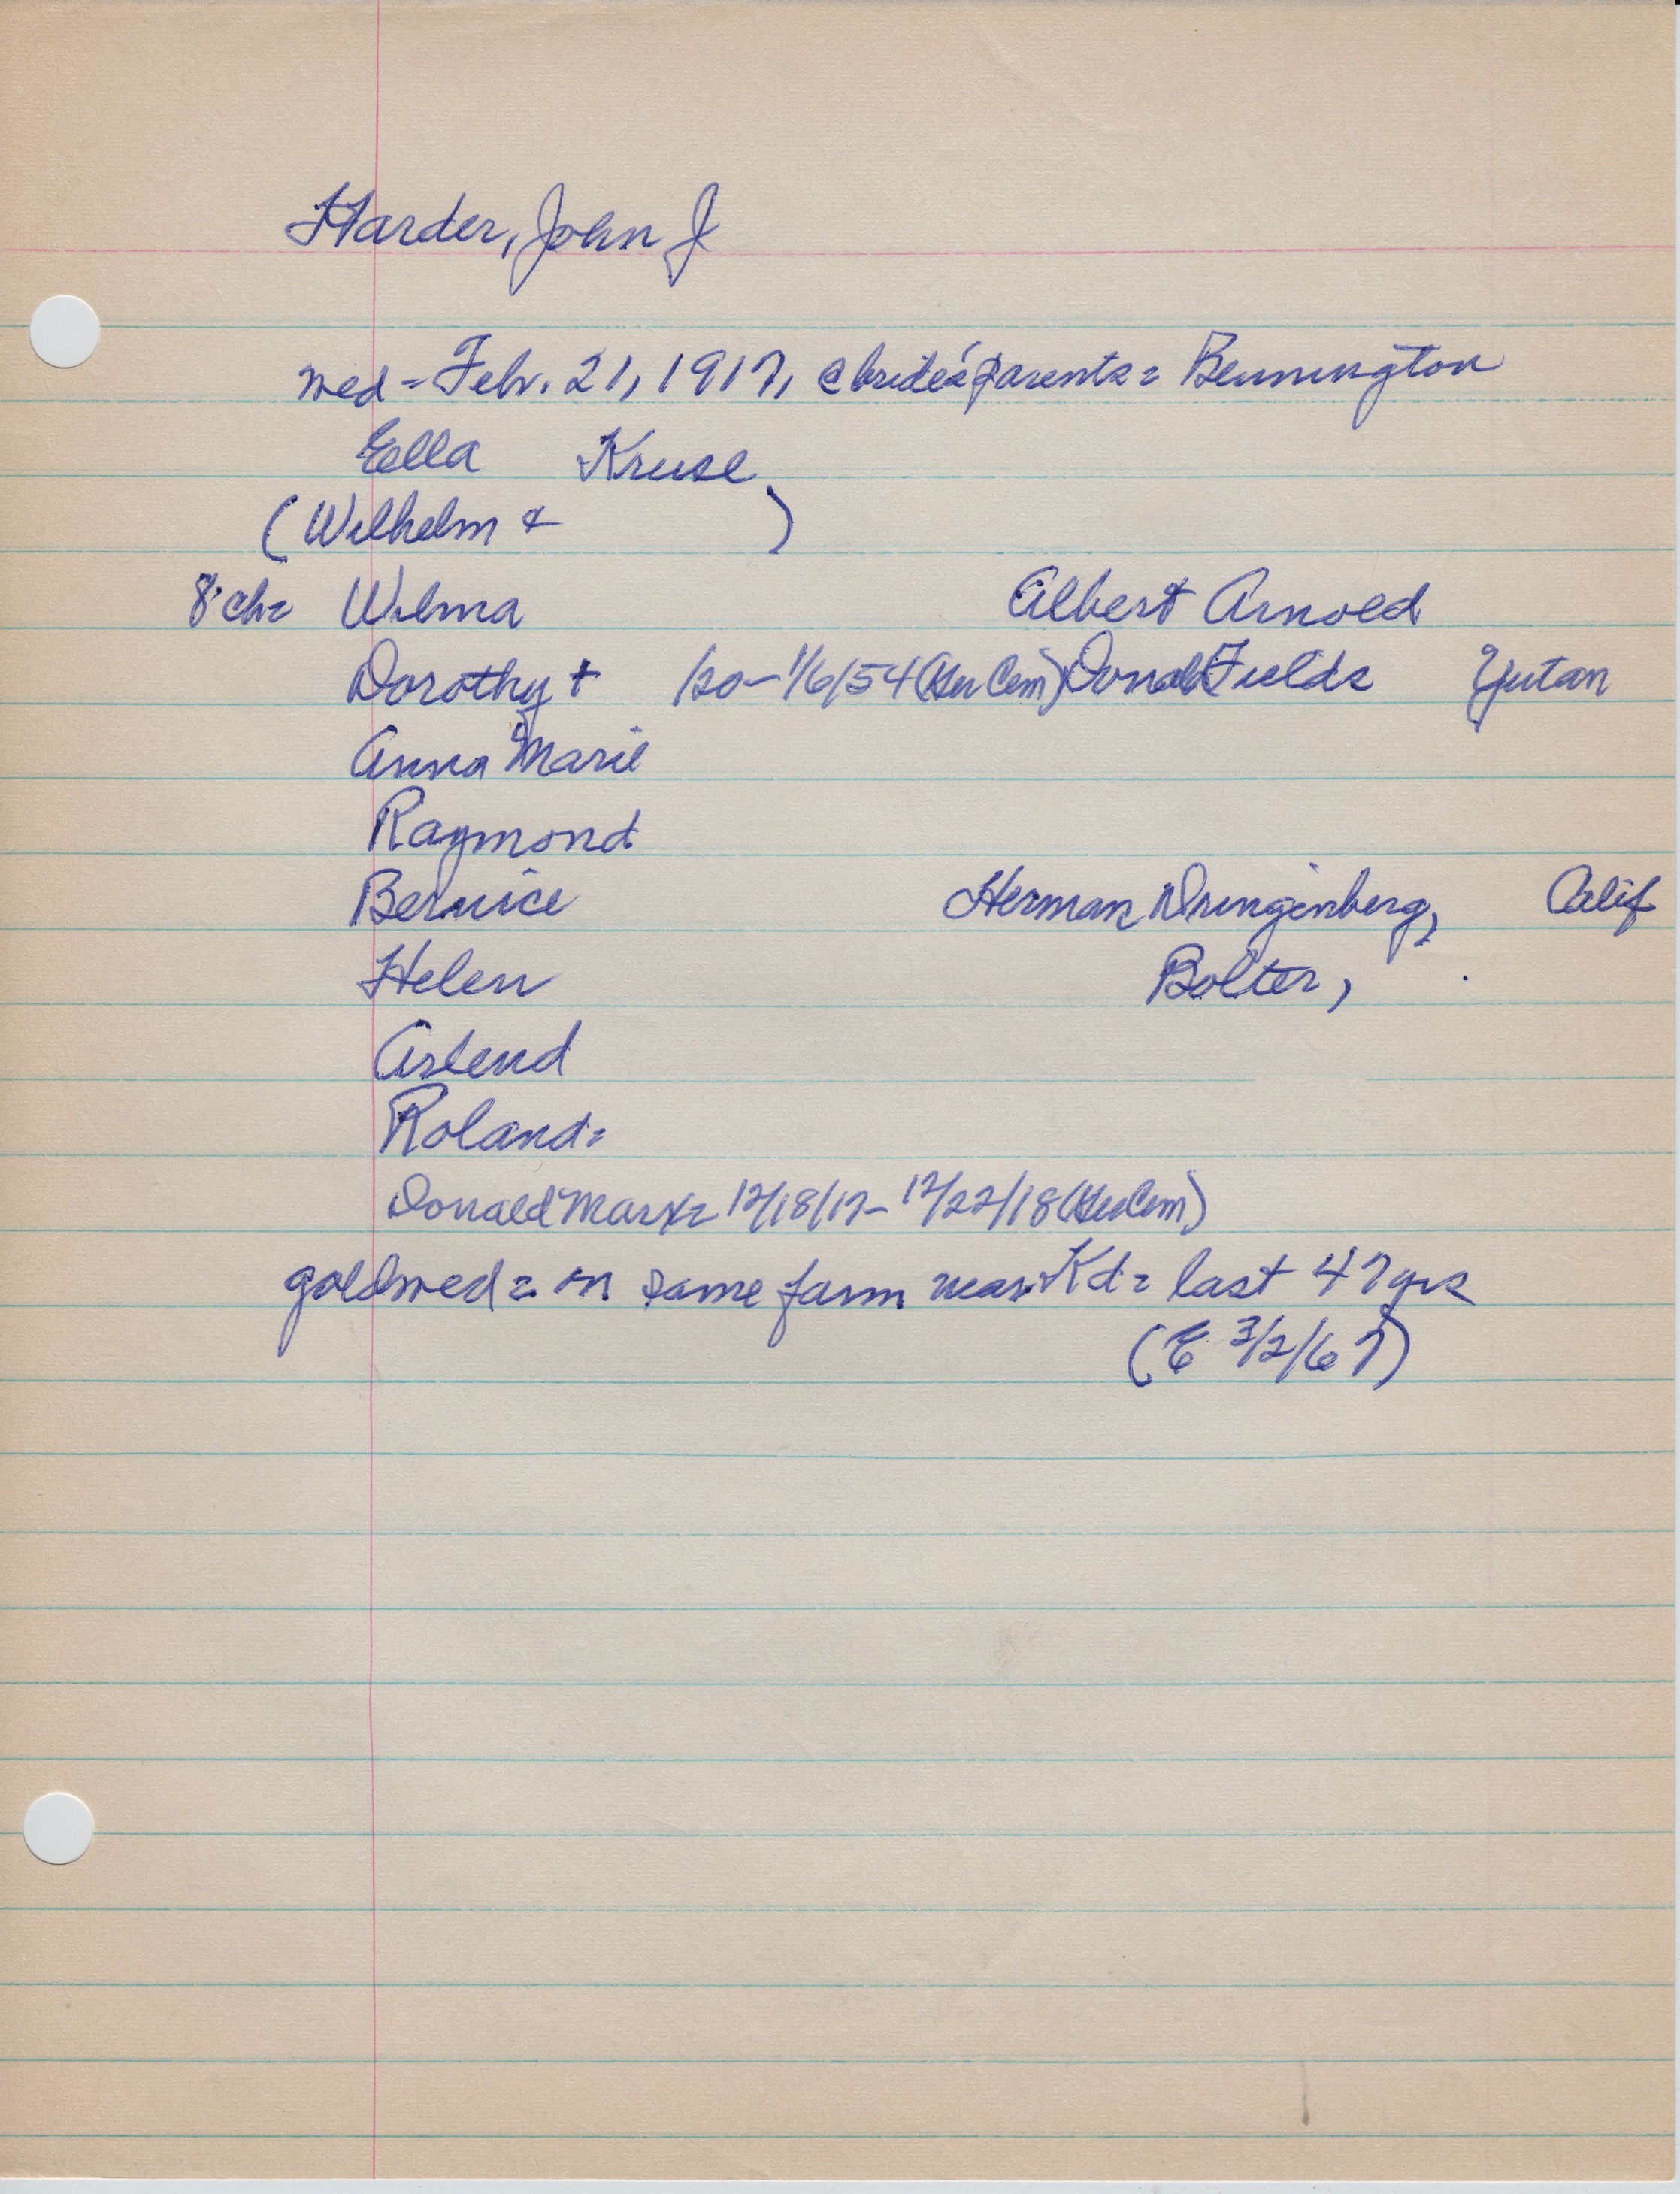 Harder, John J
wed = Febr. 21, 1917, @ bride's parents = Bennington
Ella Kruse
(Wilhelm & )
8 ch = Wilma Albert Arnold
Dorothy + /20 - 1/6/54 ( Cem) Donald Fields Yutan
Anna Marie
Raymond
Bernice Herman Dringenberg, Calif
Helen Bolter,
Arlend
Roland =
Donald Marx = 12/18/17 - 12/22/18 ( Cem)
goldwed = on same farm near Kd = last 47 yrs
(E 3/2/67)